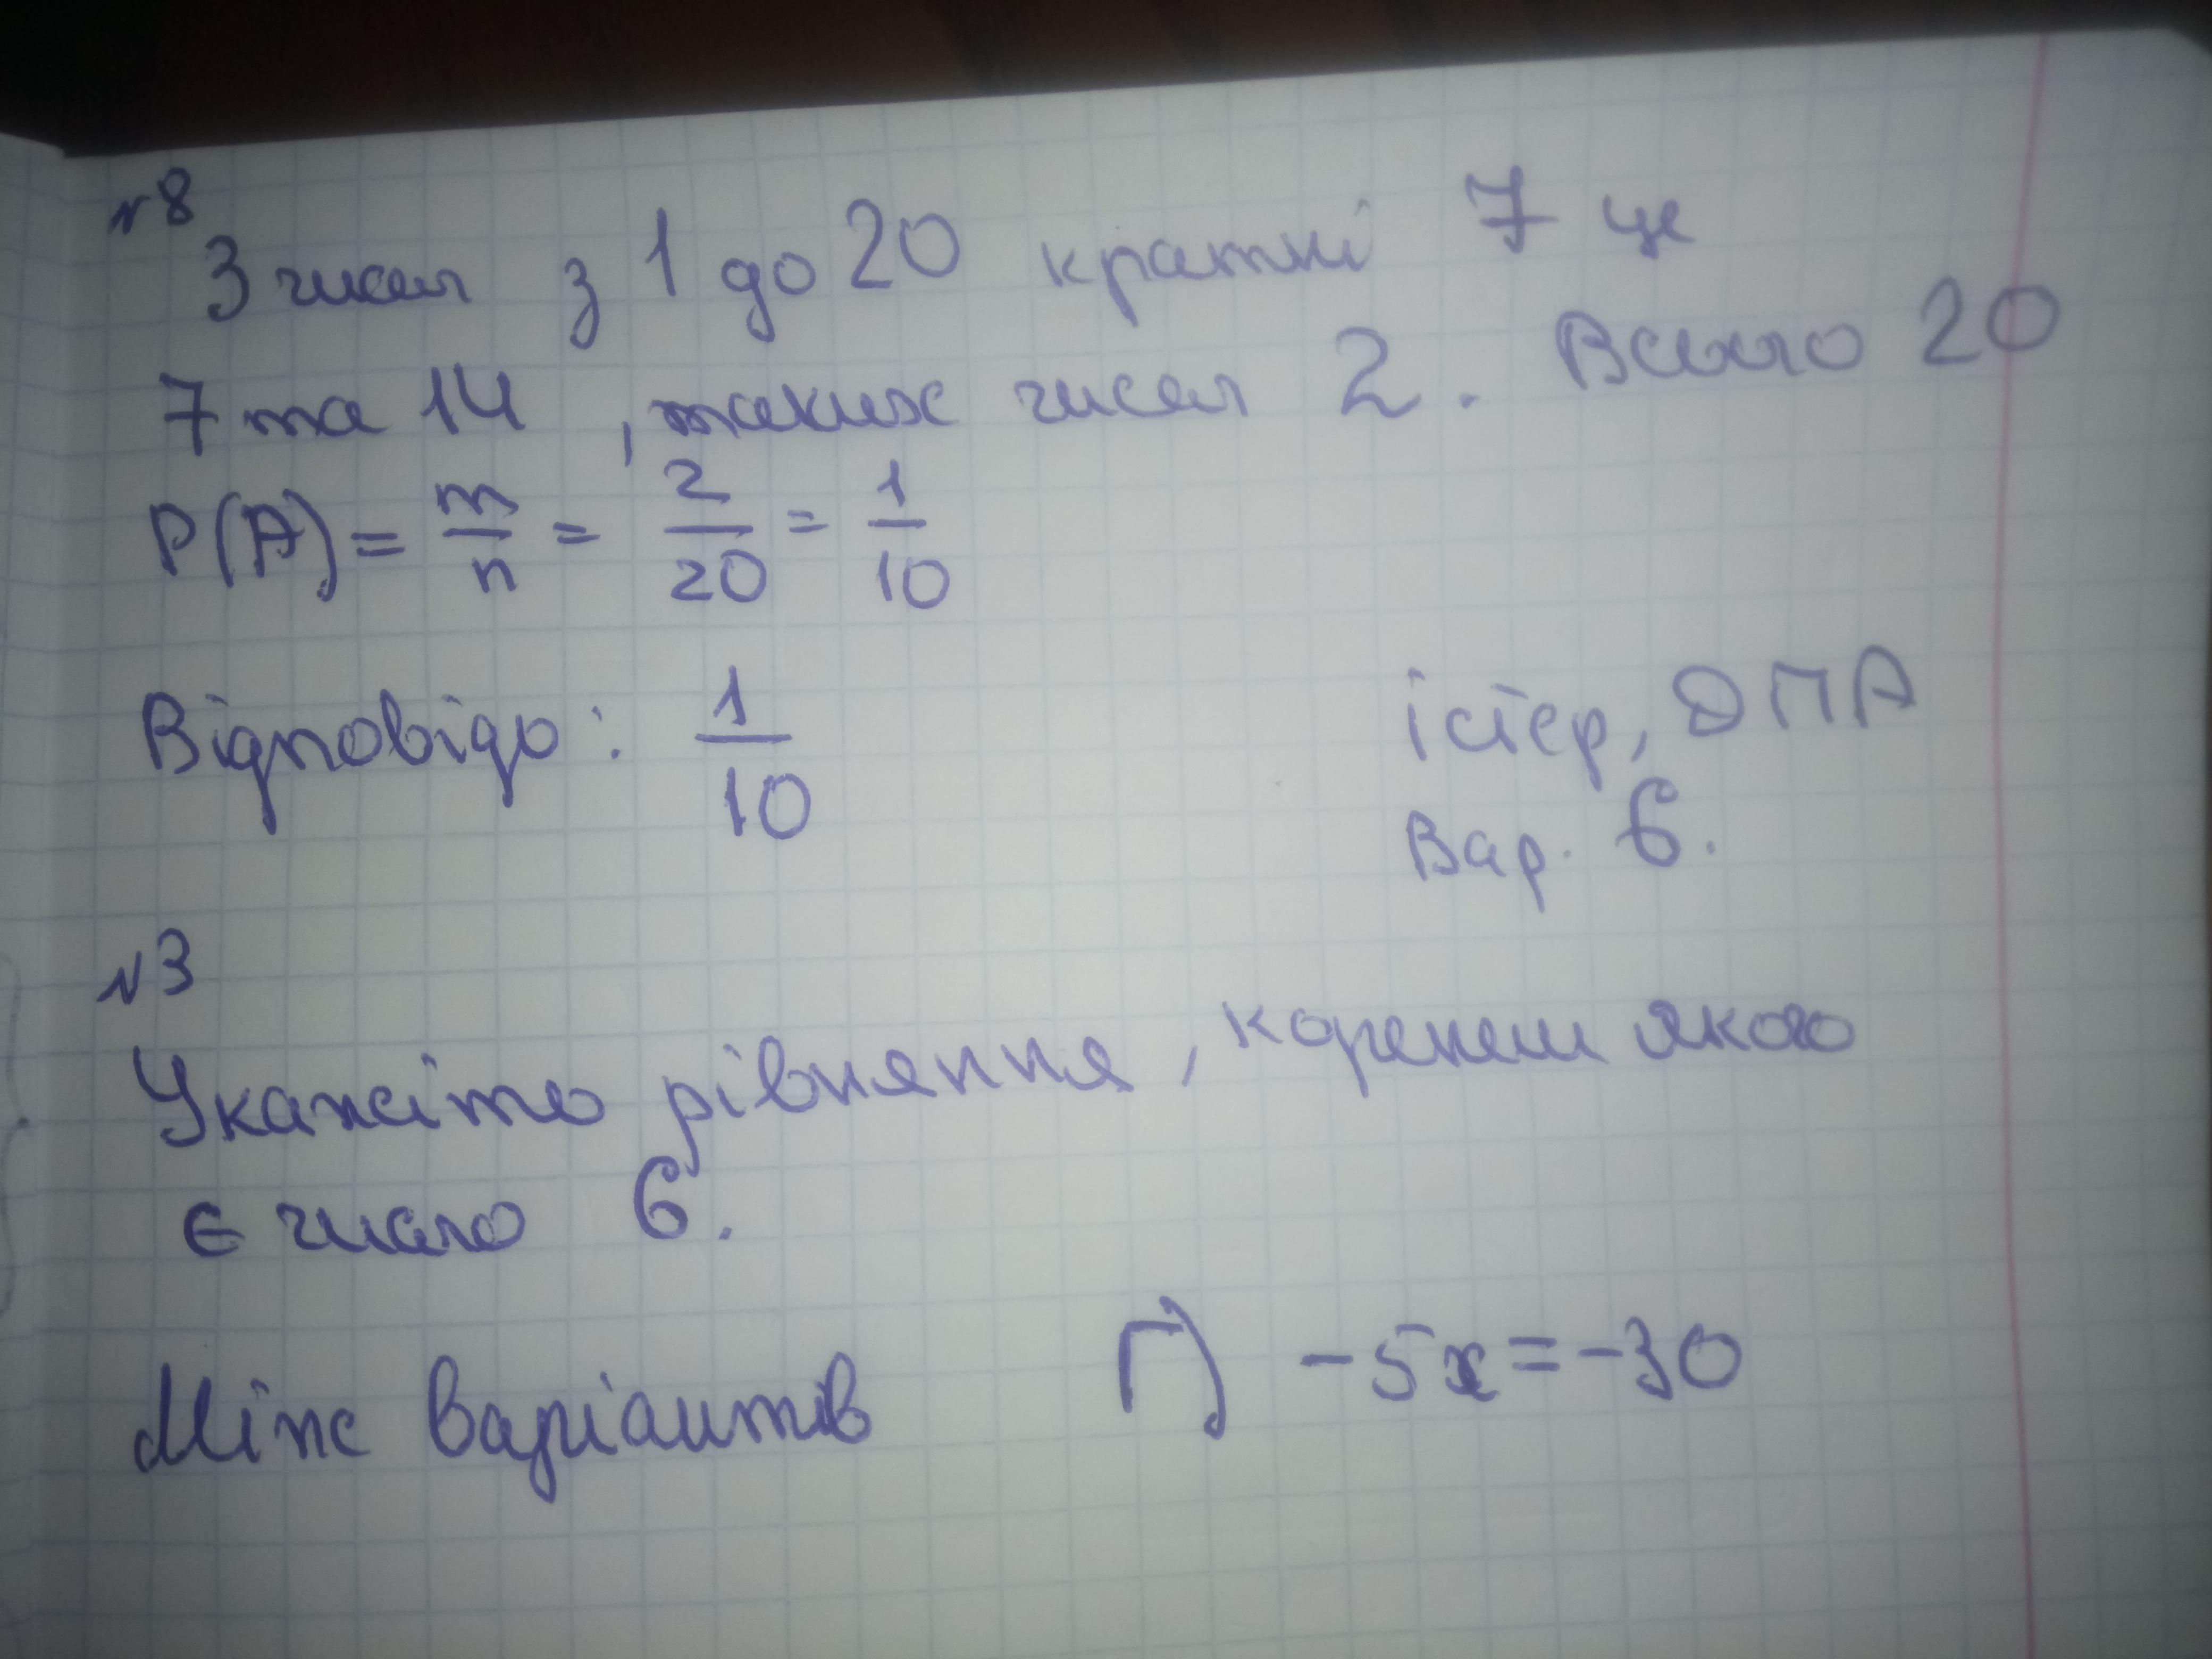 №8
З чисел з 1 до 20 кратні 7 це
7 та 14, таких чисел 2. Всього 20
P(A) = m/n = 2/20 = 1/10
Відповідь: 1/10
істер, ДПА
Вар. 6.
№3
Укажіть рівняння, коренем якого
є число 6.
Між варіантів Г) -5x = -30